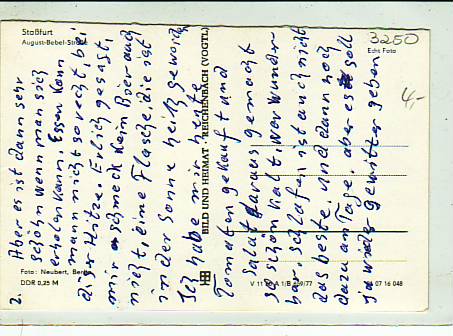 Staßfurt
August-Bebel-Straße
3250
Echt Foto
4,-
2. Aber es ist dann sehr
schön wenn man sich
erholen kann. Essen kann
mann nicht so recht, bei
dier Hitze. Erlich gesagt,
mir schmeck kein Bier auch
nicht, eine Flasche die ist
in der Sonne heiß geword
Ich habe mir heute
Tomaten gekauft und
Salat daraus gemacht
so schön kalt, wer wunder-
bar. Schlafen ist auch nicht
das beste. Und dann noch
dazu am Tage. aber es soll
ja wieder gewitter geben
BILD UND HEIMAT REICHENBACH (VOGTL)
Foto: Neubert,
DDR 0,25 M
V 11 A 1/B 77
07 16 048